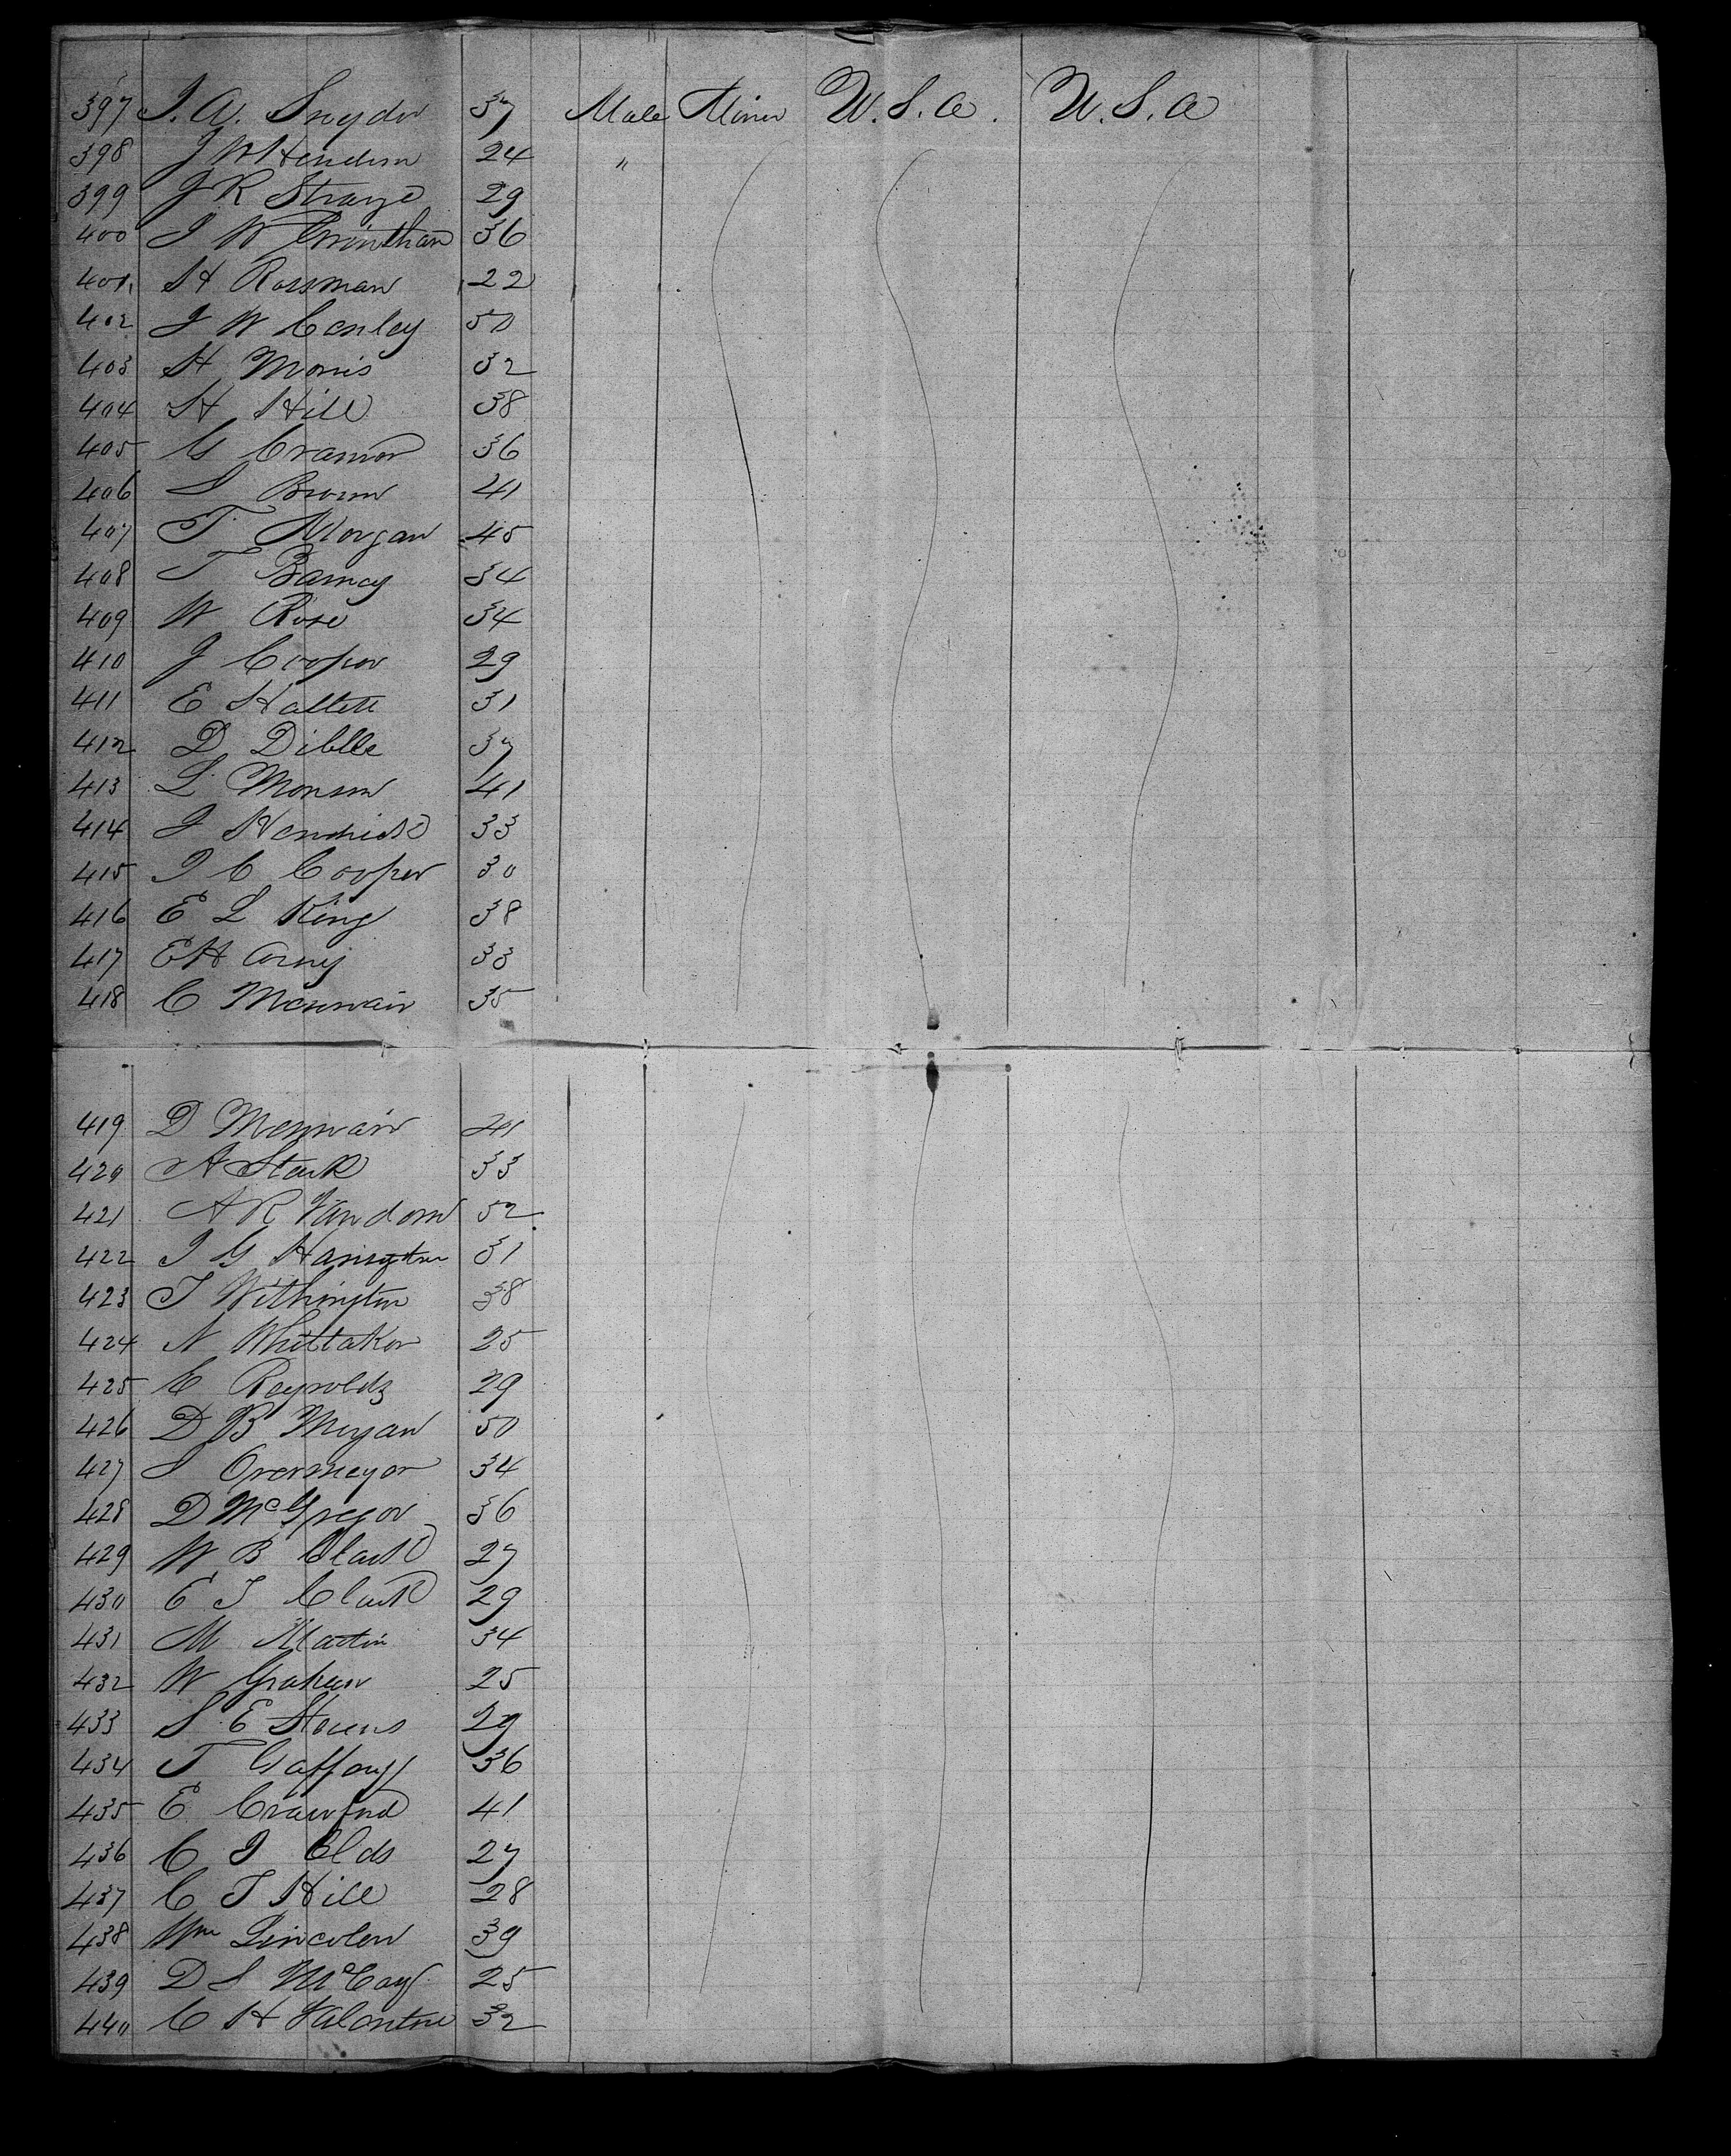 397 J. A. Snyder 37 Male Miner U.S.A. U.S.A
398 J W Hendern 24 "
399 J R Strange 29
400 J W Corinthan 36
401 H Rossman 22
402 J W Conley 50
403 H Morris 32
404 H Hill 38
405 G Cramor 36
406 S Brown 41
407 T. Morgan 45
408 T Barney 34
409 W Rose 34
410 J Cooper 29
411 E Hallett 31
412 D Diblle 37
413 L Monson 41
414 J Hendrick 33
415 J C Cooper 30
416 E L King 38
417 E H 33
418 C 35
419 D 41
420 A Stark 33
421 A R Vandorn 52
422 J G Harington 31
423 T Withington 38
424 N Whittaker 25
425 E Reynolds 29
426 D B Morgan 50
427 S Overmeyer 34
428 D McGregor 36
429 W B Clark 27
430 E T Clark 29
431 M Martin 34
432 W Graham 25
433 S E Stevens 29
434 T Gaffony 36
435 E Crawford 41
436 C J Olds 27
437 C T Hill 28
438 Wm Lincolen 39
439 D S McCay 25
440 C H Valentine 32